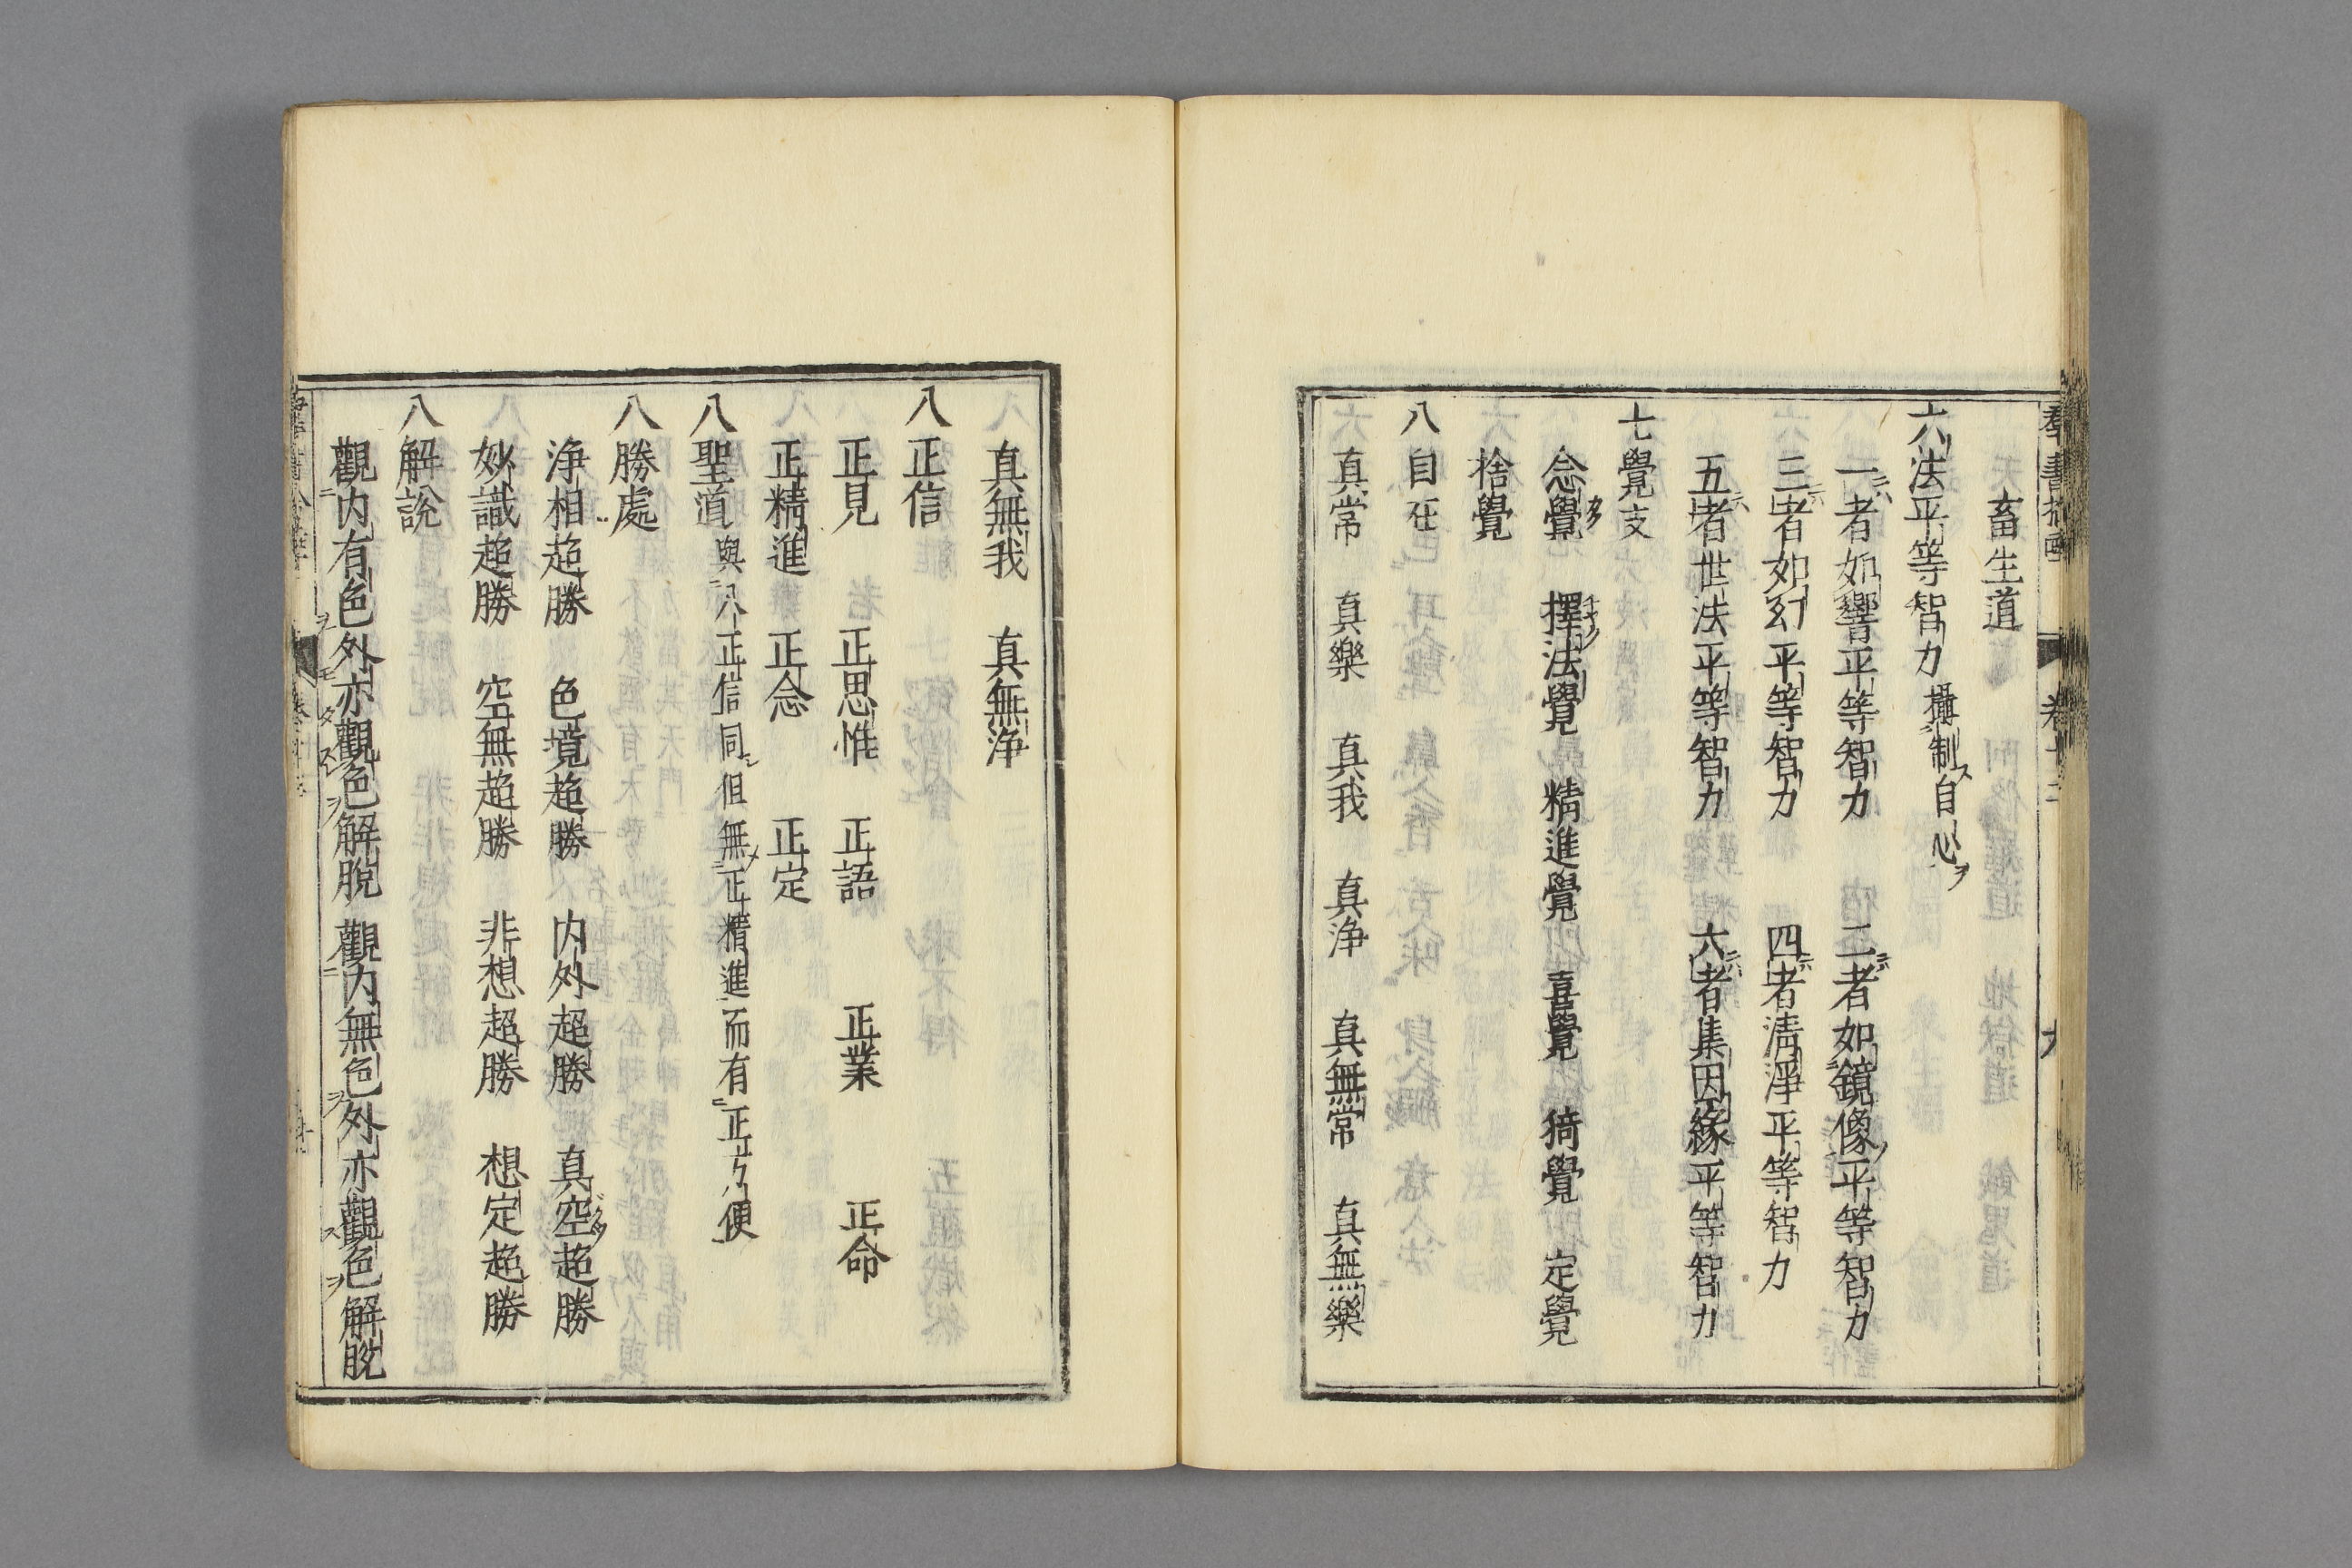 畜生道
六法平等智力 攝制ス自心ヲ
一者如響平等智力 二者如鏡像ノ平等智力
三者如幻平等智力 四者清淨平等智力
五者世法平等智力 六者集因緣平等智力
七覺支
念覺 擇法覺 精進覺 喜覺 猗覺 定覺
捨覺
八自在
真常 真樂 真我 真淨 真無常 真無樂
真無我 真無淨
八正信
正見 正思惟 正語 正業 正命
正精進 正念 正定
八聖道 與八正信同但無正精進而有正方便
八勝處
淨相超勝 色境超勝 内外超勝 真空超勝
妙識超勝 空無超勝 非想超勝 想定超勝
八解說
觀内有色外亦觀色解脫 觀内無色外亦觀色解脫